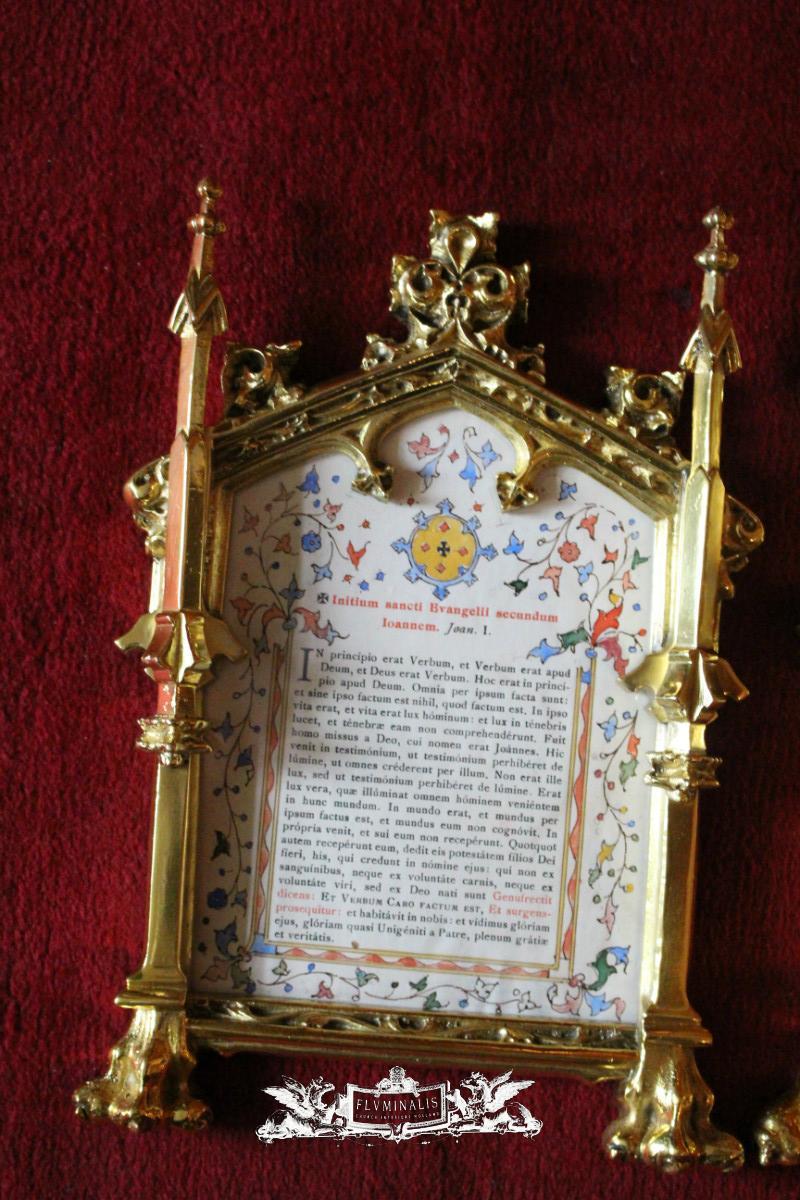 ✠ Initium sancti Evangelii secundum
Ioannem. Joan. I.
IN princípio erat Verbum, et Verbum erat apud
Deum, et Deus erat Verbum. Hoc erat in princí-
pio apud Deum. Omnia per ipsum facta sunt:
et sine ipso factum est nihil, quod factum est. In ipso
vita erat, et vita erat lux hóminum: et lux in ténebris
lucet, et ténebræ eam non comprehendérunt. Fuit
homo missus a Deo, cui nomen erat Joánnes. Hic
venit in testimónium, ut testimónium perhibéret de
lúmine, ut omnes créderent per illum. Non erat ille
lux, sed ut testimónium perhibéret de lúmine. Erat
lux vera, quæ illúminat omnem hóminem veniéntem
in hunc mundum. In mundo erat, et mundus per
ipsum factus est, et mundus eum non cognóvit. In
própria venit, et sui eum non recepérunt. Quotquot
autem recepérunt eum, dedit eis potestátem fílios Dei
fíeri, his, qui credunt in nómine ejus: qui non ex
sanguínibus, neque ex voluntáte carnis, neque ex
voluntáte viri, sed ex Deo nati sunt Genuflectit
dicens: Et Verbum Caro factum est, Et surgens
prosequitur: et habitávit in nobis: et vídimus glóriam
ejus, glóriam quasi Unigéniti a Patre, plenum grátiæ
et veritátis.
FLVMINALIS
CHURCH INTERIORS HOLLAND